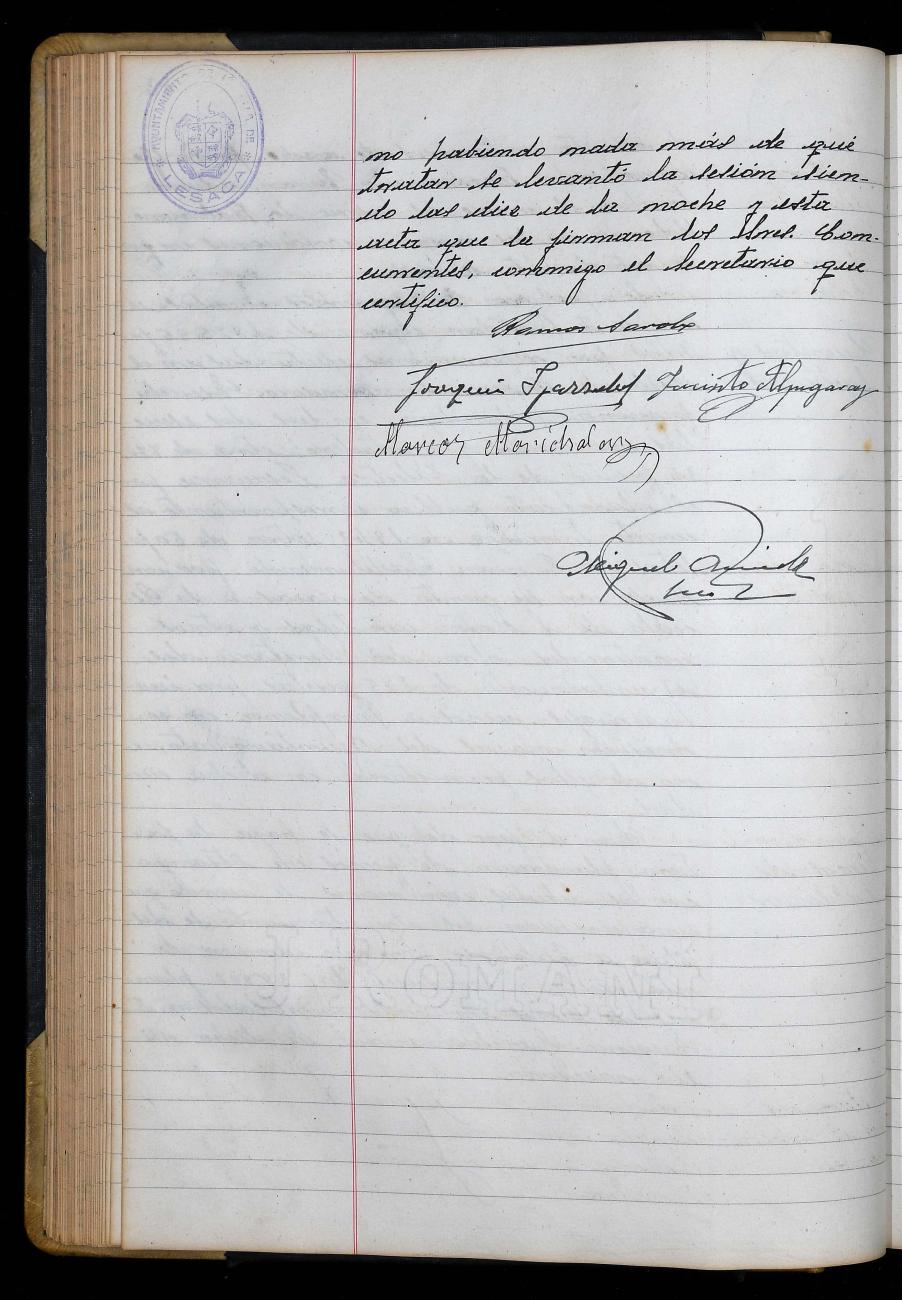 AYUNTAMIENTO DE LA VILLA DE
* LESACA *
no habiendo nada más de qué
tratar se levantó la sesión sien-
do las diez de la noche y esta
acta que la firman los Sres. Con-
currentes, conmigo el Secretario que
certifico.
Ramos
Joaquín Jacinto
Marcos Marichalar
Miguel